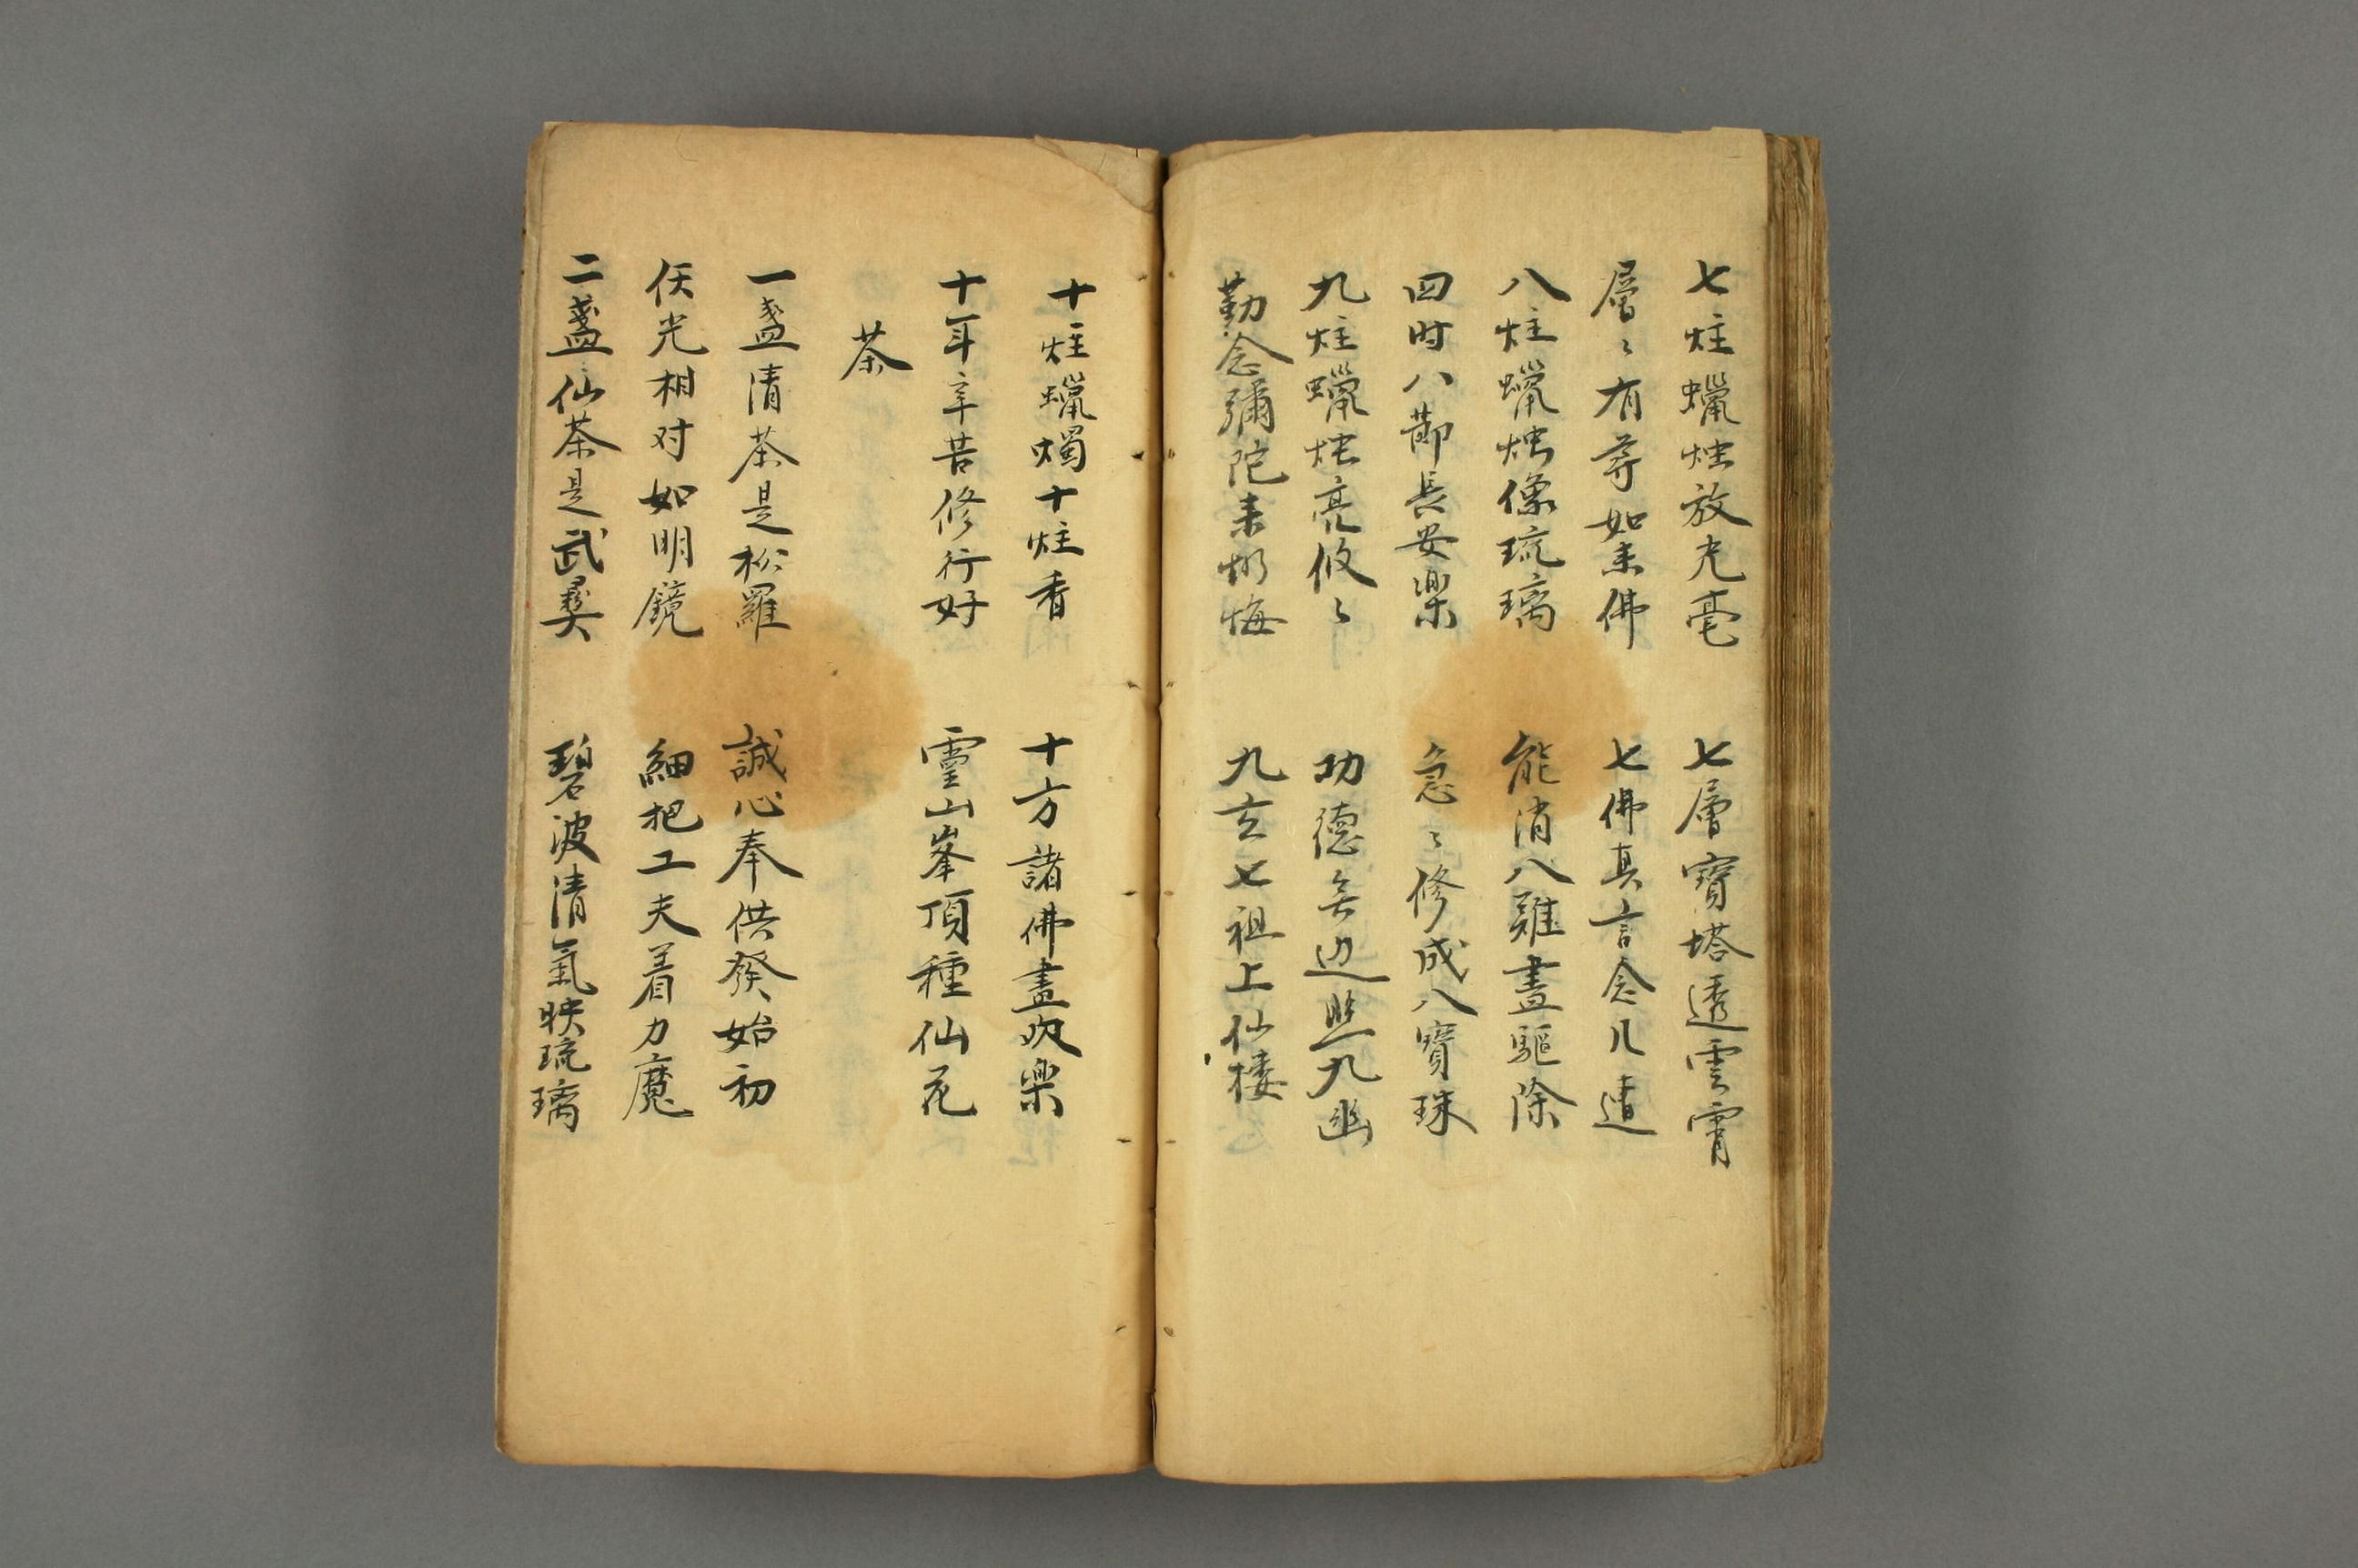 七炷蠟烛放光毫　七層寶塔透雲霄
層〻有尊如来佛　七佛真言念几遭
八炷蠟烛像琉璃　能消八難盡驅除
四时八節長安樂　急〻修成八寶珠
九炷蠟烛亮攸〻　功德无边照九幽
勤念彌陀来忏悔　九玄七祖上仙楼
十炷蠟燭十炷香　十方諸佛盡欢樂
十年辛苦修行好　靈山峯頂種仙花
茶
一盞清茶是松羅　誠心奉供癸始初
仸光相对如明鏡　細把工夫着力魔
二盞仙茶是武彛　碧波清氣映琉璃